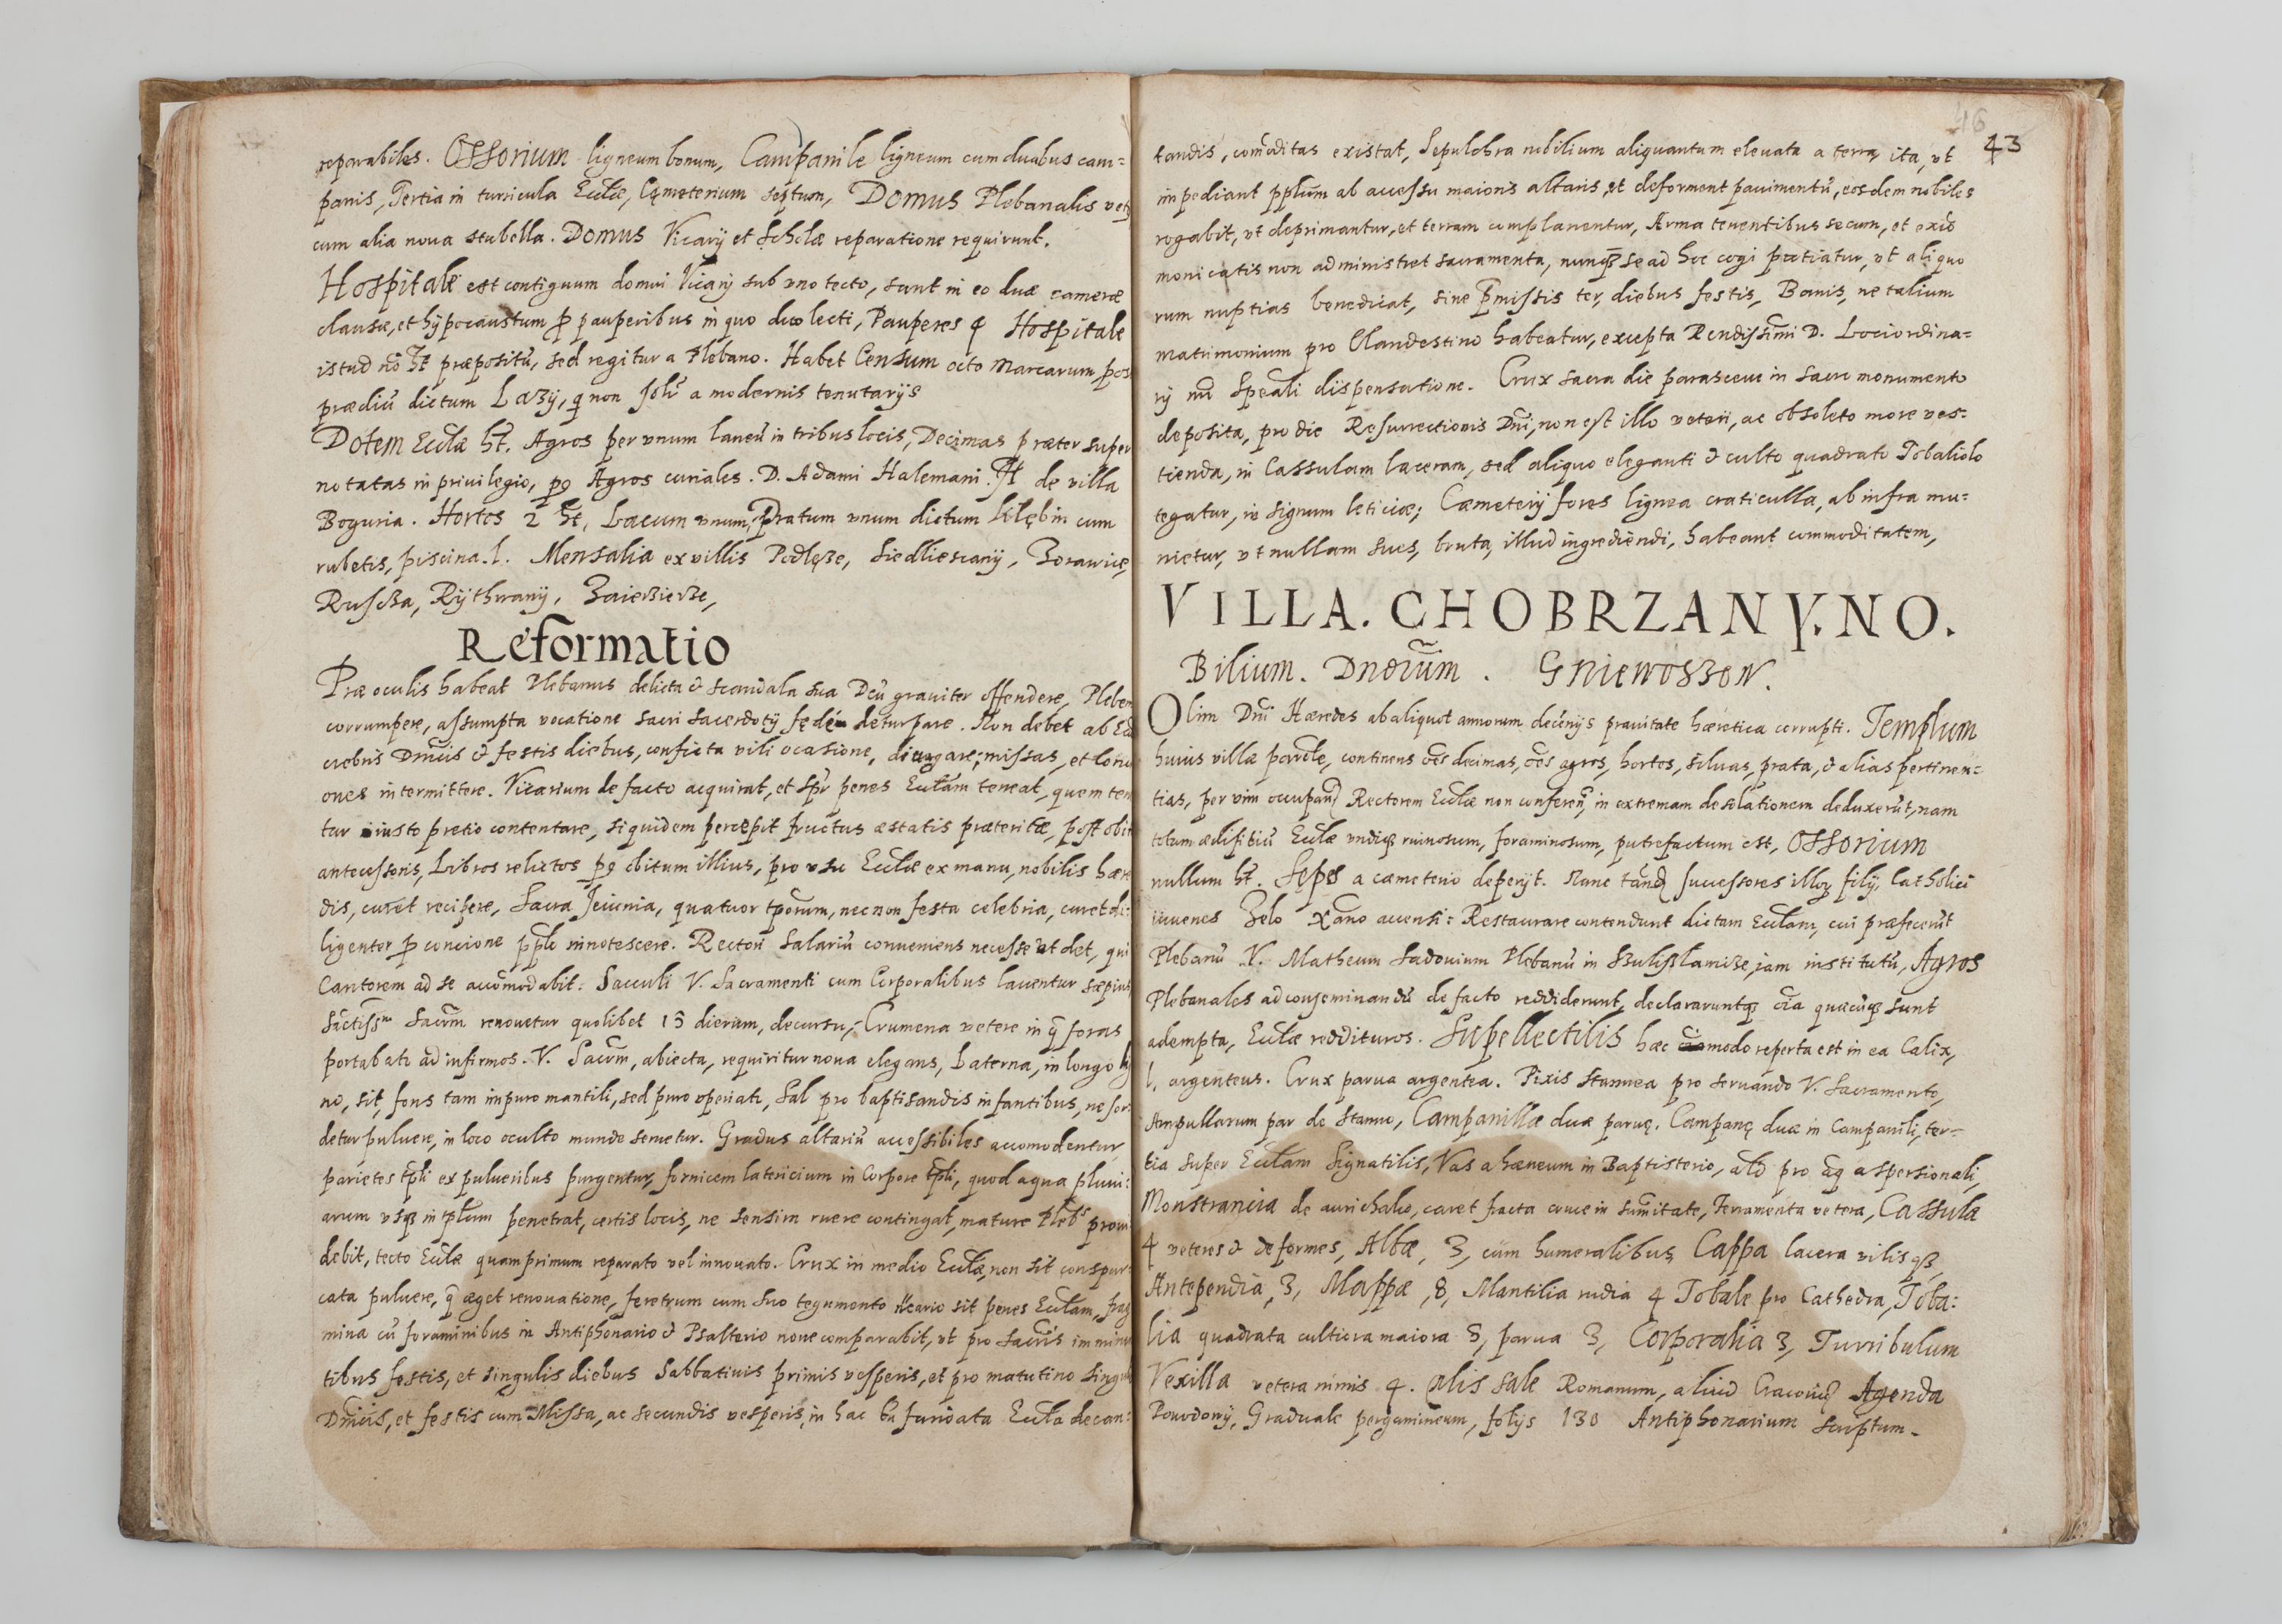 reparabiles. Ossorium ligneum bonum, Campanile ligneum cum duabus cam=
panis, Tertia in turricula Eccłæ, Cęmeterium septum, Domus Plebanalis vet
cum alia noua stubella. Domus Vicarij et Scholæ reparatione requirunt.
Hospitale est contiguum domui Vicarij sub vno tecto, sunt in eo duæ cameræ
clausæ, et hÿpocaustum p pauperibus in quo duo lecti, Pauperes 4 Hospitale
istud nō ht præpositū, sed regitur a Plebano. Habet Censum octo Marcarum
prædiū dictum Lazÿ, q non solr a modernis tenutarijs
Dotem Eccłæ ht. Agros per vnum laneū in tribus locis, Decimas præter super
notatas in priuilegio, Agros curiales. D. Adami Halemani. de villa
Boguria. Hortos 2 ht, Lacum vnum, Pratum vnum dictum Kłębin cum
rubetis, piscina .1. Mensalia ex villis Podlęże, Siedliescanÿ, Zorawicę
Ruscza, Rÿthwanÿ, Zaiezierze,
Reformatio
Præ oculis habeat Plebanus delicta & scandala sua Deū grauiter offendere, Pleben
corrumpere, assumpta vocatione sacri sacerdotij fędé deturpare. Non debet ab
crebris Dnicis & festis diebus, conficta vili ocasione, diuagare, missas, et
ones intermittere. Vicarium de facto acquirat, et spr penes Eccłam teneat, quem ten
tur iusto pretio contentare, siquidem percepit fructus æstatis præteritæ, post obit
antecessoris, Libros relictos obitum illius, pro vsu Eccłæ ex manu nobilis hære
dis, curet recipere, Sacra Jeiunia, quatuor tporum, nec non festa celebria, curet di=
ligenter p concione pplo innotescere. Rectori Salariū conueniens necesse vt det, qui
Cantorem ad se accōmodabit: Sacculi V. Sacramenti cum Corporalibus lauentur sæpius
Sactissm Sacrm renouetur quolibet 15 dierum, decursu, Crumena vetere in q foras
portabatr ad infirmos. V. Sacrm, abiecta, requiritur noua elegans, Laterna, in longo
no, sit, fons tam impuro mantili, sed puro operiatr, Sal pro baptisandis infantibus, ne sor=
detur puluere, in loco oculto mundo seruetur. Gradus altariū accessibiles accomodentur,
parietes tpli ex pulueribus purgentur, fornicem latericium in Corpore tpli, quod aqua pluui=
arum vsq in tplum penetrat, certis locis, ne sensim ruere contingat, mature Plebs proui
debit, tecto Eccłæ quamprimum reparato vel innouato. Crux in medio Eccłæ, non sit conspur=
cata puluere, q æget renouatione, feretrum cum suo tegumento sit penes Eccłam, frag
mina cū foraminibus in Antiphonario & Psalterio noue comparabit, vt pro sacris imminen
tibus festis, et singulis diebus Sabbatiuis primis vesperis, et pro matutino singulis
Dnicis, et festis cum Missa, ac secundis vesperis, in hac fundata Eccła decan=
43
tandis, comōditas existat, Sepulchra nobilium aliquantum eleuata a terra, ita, vt
impediant pplum ab accessu maioris altaris, et deforment pauimentū, eosdem nobiles
rogabit, vt deprimantur, et terram complanentur, Arma tenentibus secum, et exco
monicatis non administret sacramenta, nunq se ad hoc cogi patiatur, vt aliquo
rum nuptias benedicat, sine pmissis ter, diebus festis, Banis, ne talium
matrimonium pro Clandestino habeatur, excepta Rendissimi D. Lociordina=
rij speali dispensatione. Crux sacra die parasceue in sacro monumento
deposita, pro die Resurrectionis Dni, non est illo veteri, ac obsoleto more ves=
tienda, in Cassulam laceram, sed aliquo eleganti & culto quadrato Tobaliolo
tegatur, in signum leticiæ; Cæmeterij fores lignea craticulla, ab infra mu=
nietur, vt nullam sues, bruta, illud ingrediendi, habeant commoditatem,
VILLA. CHOBRZANY. NO.
Bilium. Dnorum. Gniewoszow.
Olim Dni Hæredes ab aliquot annorum decēnijs prauitate hæretica corrupti. Templum
huius villæ paroле, continens oēs decimas, oēs agros, hortos, siluas, prata, & alias pertinen=
tias, per vim occupan Rectorem Eccłæ non conferen, in extremam desolationem deduxerūt, nam
totum ædifitiū Eccłæ vndiq ruinosum, foraminosum, putrefactum est, Ossorium
nullum ht. Sępes a cæmeterio deperijt. Nunc tand successores illor filij, Catholici
iuuenes Zelo Xano accensi: Restaurare contendunt dictam Eccłam, cui præfecerūt
Plebanū V. Matheum Sadouium Plebanū in Szulislawize, iam institutū, Agros
Plebanales ad conseminandū de facto reddiderunt, declararuntq oīa quæcūq sunt
adempta, Eccłæ reddituros. Supellectilis hæc modo reperta est in ea Calix,
1, argenteus. Crux parua argentea. Pixis stannea pro seruando V. Sacramento,
Ampullarum par de stanno, Campanillæ duæ paruę. Campanę duæ in Campanili, ter=
tia super Eccłam Signatilis, Vas ahæneum in Baptisterio, ald pro aq aspersionali,
Monstrancia de aurichalco, caret fracta cruce in sumitate, Ferramenta vetera, Cassulæ
4 veteres & deformes, Albæ, 3, cum humeralibus, Cappa lacera vilisq3,
Antependia, 3, Mappæ, 8, Mantilia rudia 4 Tobale pro Cathedra, Toba=
lia quadrata cultiora maiora 5, parua 3, Corporalia 3, Turribulum
Vexilla vetera nimis 4. Missale Romanum, aliud Cracouię Agenda
Powodowÿ, Graduale pergamineum, folijs 130 Antiphonarium scriptum.